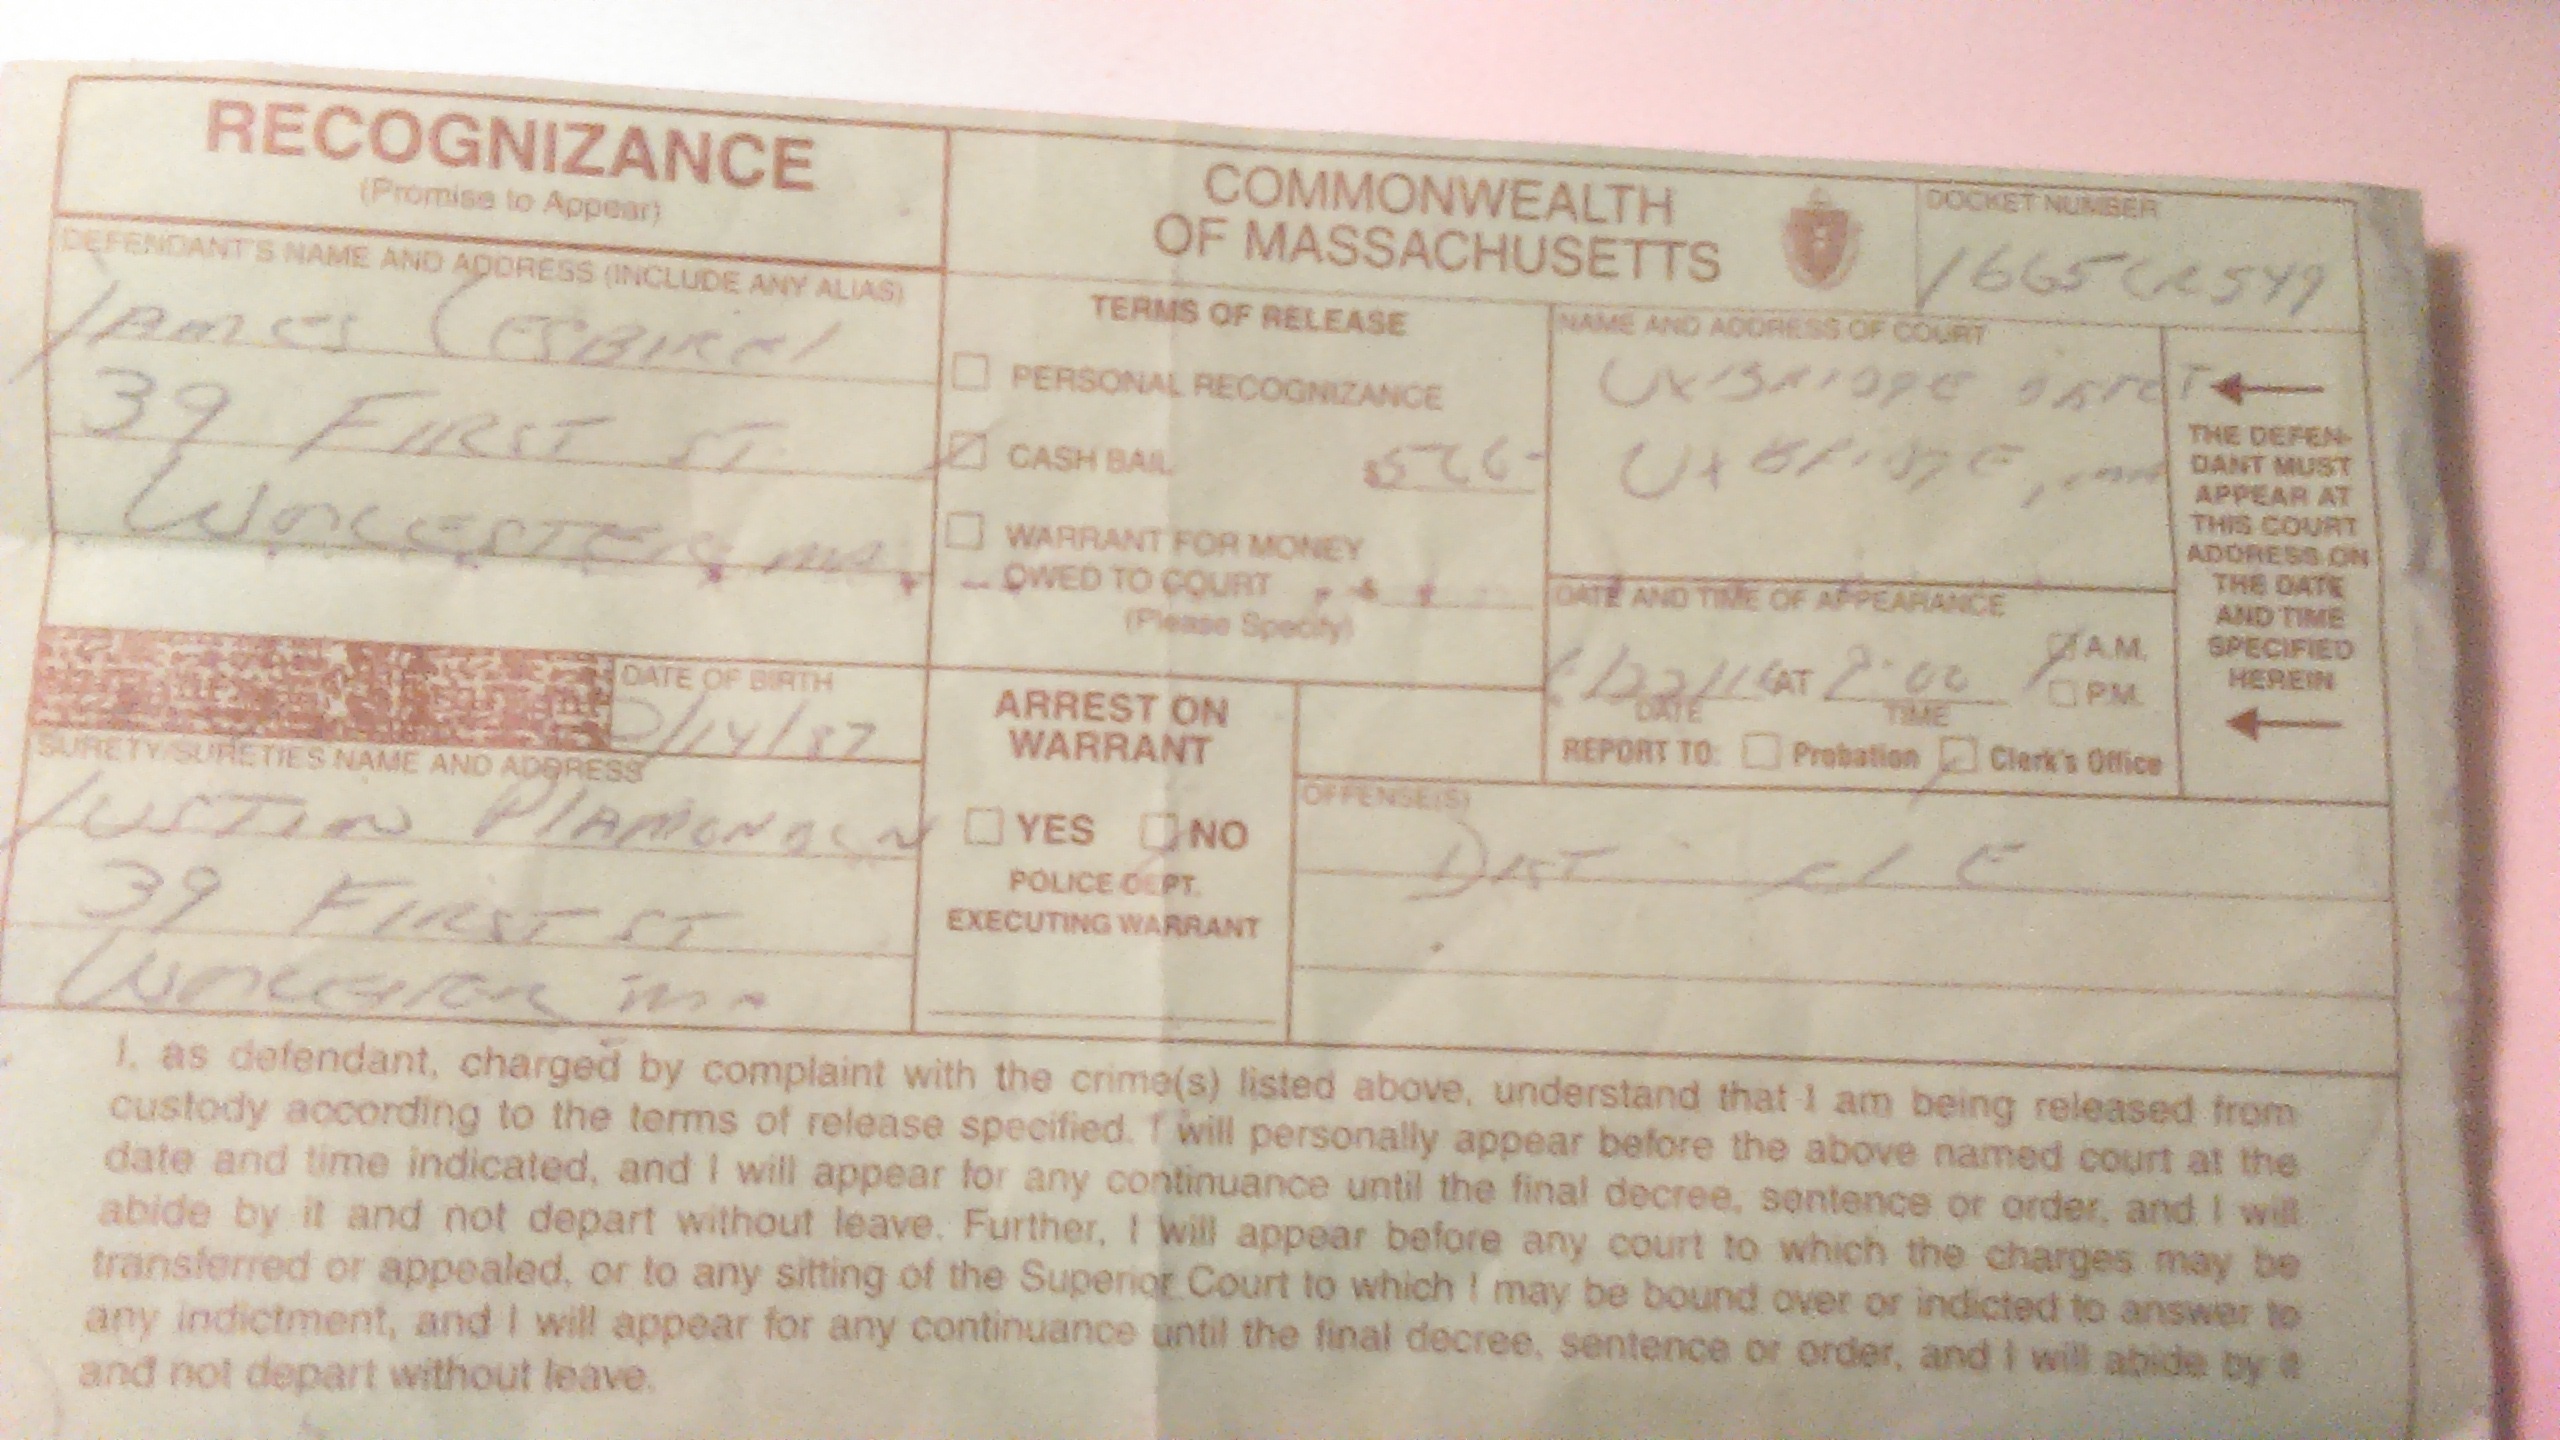 RECOGNIZANCE
(Promise to Appear)
COMMONWEALTH
OF MASSACHUSETTS
DOCKET NUMBER
1665CR549
DEFENDANT'S NAME AND ADDRESS (INCLUDE ANY ALIAS)
JAMES
39 FIRST ST
WORCESTER, MA
DATE OF BIRTH
/14/87
SURETY/SURETIES NAME AND ADDRESS
JUSTIN PLAMONDON
39 FIRST ST
WORCESTER MA
TERMS OF RELEASE
PERSONAL RECOGNIZANCE
CASH BAIL $
WARRANT FOR MONEY
OWED TO COURT
(Please Specify)
ARREST ON
WARRANT
YES NO
POLICE DEPT.
EXECUTING WARRANT
NAME AND ADDRESS OF COURT
UXBRIDGE DISTCT
UXBRIDGE, MA
DATE AND TIME OF APPEARANCE
AT 9:00 A.M.
P.M.
DATE TIME
REPORT TO: Probation Clerk's Office
THE DEFEN-
DANT MUST
APPEAR AT
THIS COURT
ADDRESS ON
THE DATE
AND TIME
SPECIFIED
HEREIN
OFFENSE(S)
DIST cl E
I, as defendant, charged by complaint with the crime(s) listed above, understand that I am being released from
custody according to the terms of release specified. I will personally appear before the above named court at the
date and time indicated, and I will appear for any continuance until the final decree, sentence or order, and I will
abide by it and not depart without leave. Further, I will appear before any court to which the charges may be
transferred or appealed, or to any sitting of the Superior Court to which I may be bound over or indicted to answer to
any indictment, and I will appear for any continuance until the final decree, sentence or order, and I will abide by it
and not depart without leave.